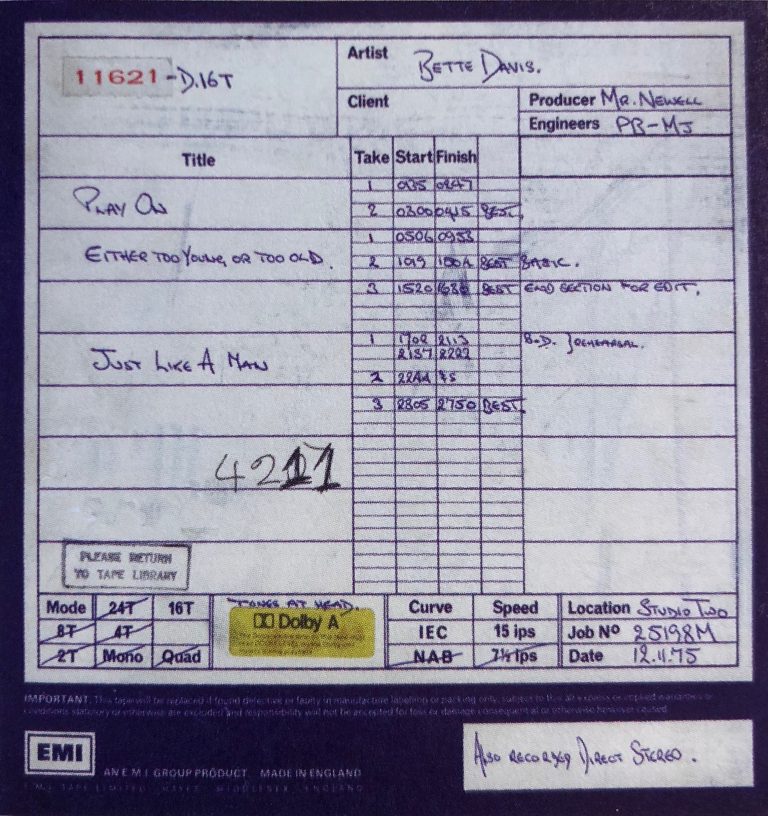 11621-D.16T
Artist BETTE DAVIS.
Client
Producer MR. NEWELL
Engineers PB-MJ
Title Take Start Finish
1
PLAY ON
2 0300 0415 BEST.
1 0506 0953
EITHER TOO YOUNG OR TOO OLD.
2 1019 BEST BASIC.
3 1520 1636 BEST END SECTION FOR EDIT.
1 1702 2113 B.D. } REHEARSAL.
2137 2222
JUST LIKE A MAN
2 22AA FS
3 2305 2750 BEST.
4211
PLEASE RETURN
TO TAPE LIBRARY
Mode 24T 16T
8T 4T
2T Mono Quad
TONES AT HEAD.
Dolby A
Curve Speed
IEC 15 ips
NAB 7½ ips
Location STUDIO TWO
Job Nº 25198M
Date 12.11.75
IMPORTANT. This tape will be replaced if found defective or faulty in manufacture labelling or packing only, subject to this all express or implied warranties or
conditions statutory or otherwise are excluded and responsibility will not be accepted for loss or damage consequential or otherwise however caused
EMI
AN E M I GROUP PRODUCT. MADE IN ENGLAND
EMI TAPE LIMITED HAYES MIDDLESEX ENGLAND
ALSO RECORDED DIRECT STEREO.